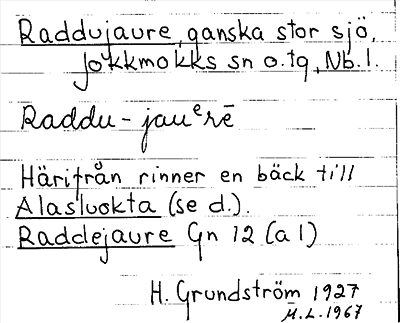 Raddujaure, ganska stor sjö,
Jokkmokks sn o. tg, Nb. l.
Raddu-jauᵉrē
Härifrån rinner en bäck till
Alasluokta (se d.).
Raddejaure Gn 12 (a l)
H. Grundström 1927
M.L. 1967